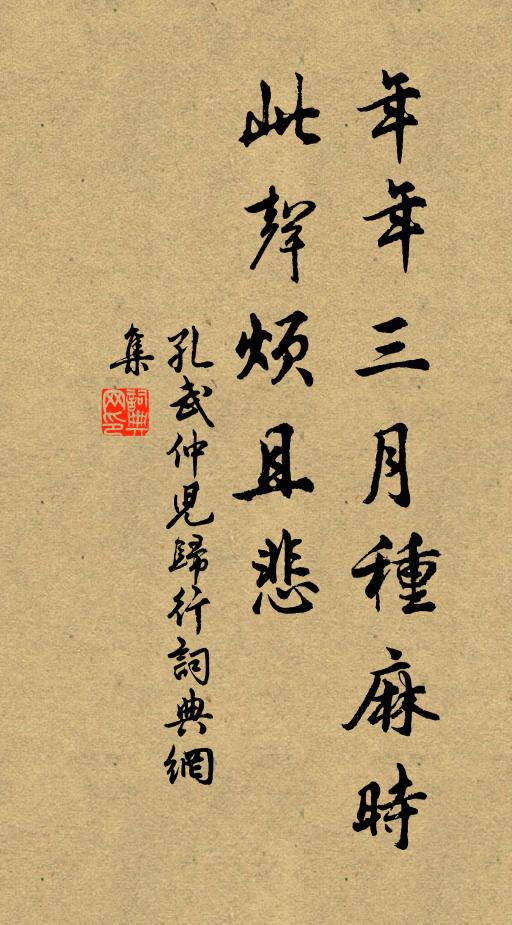 年年三月種麻時
此聲煩且悲
孔武仲兒歸行詞典網
集
詞典網印